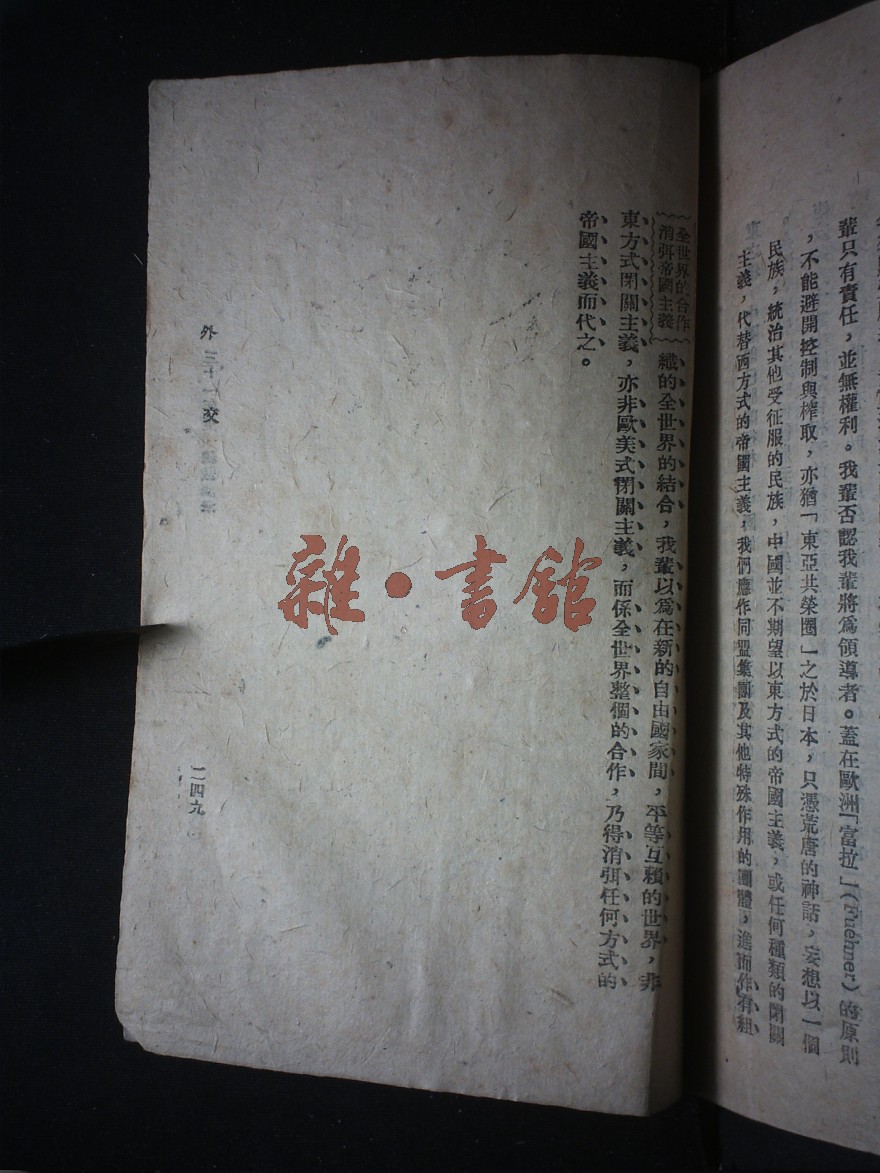 輩只有責任，並無權利。我輩否認我輩將爲領導者。蓋在歐洲「富拉」（Fuehner）的原則
，不能避開控制與榨取，亦猶「東亞共榮圈」之於日本，只憑荒唐的神話，妄想以一個
民族，統治其他受征服的民族，中國並不期望以東方式的帝國主義，或任何種類的閉關
主義，代替西方式的帝國主義，我們應作同盟集團及其他特殊作用的團體，進而作有組
全世界的合作
消弭帝國主義
織的全世界的結合，我輩以爲在新的自由國家間，平等互賴的世界，非
東方式閉關主義，亦非歐美式閉關主義，而係全世界整個的合作，乃得消弭任何方式的
帝國主義而代之。
外 三十一 交
二四九
雜·書館